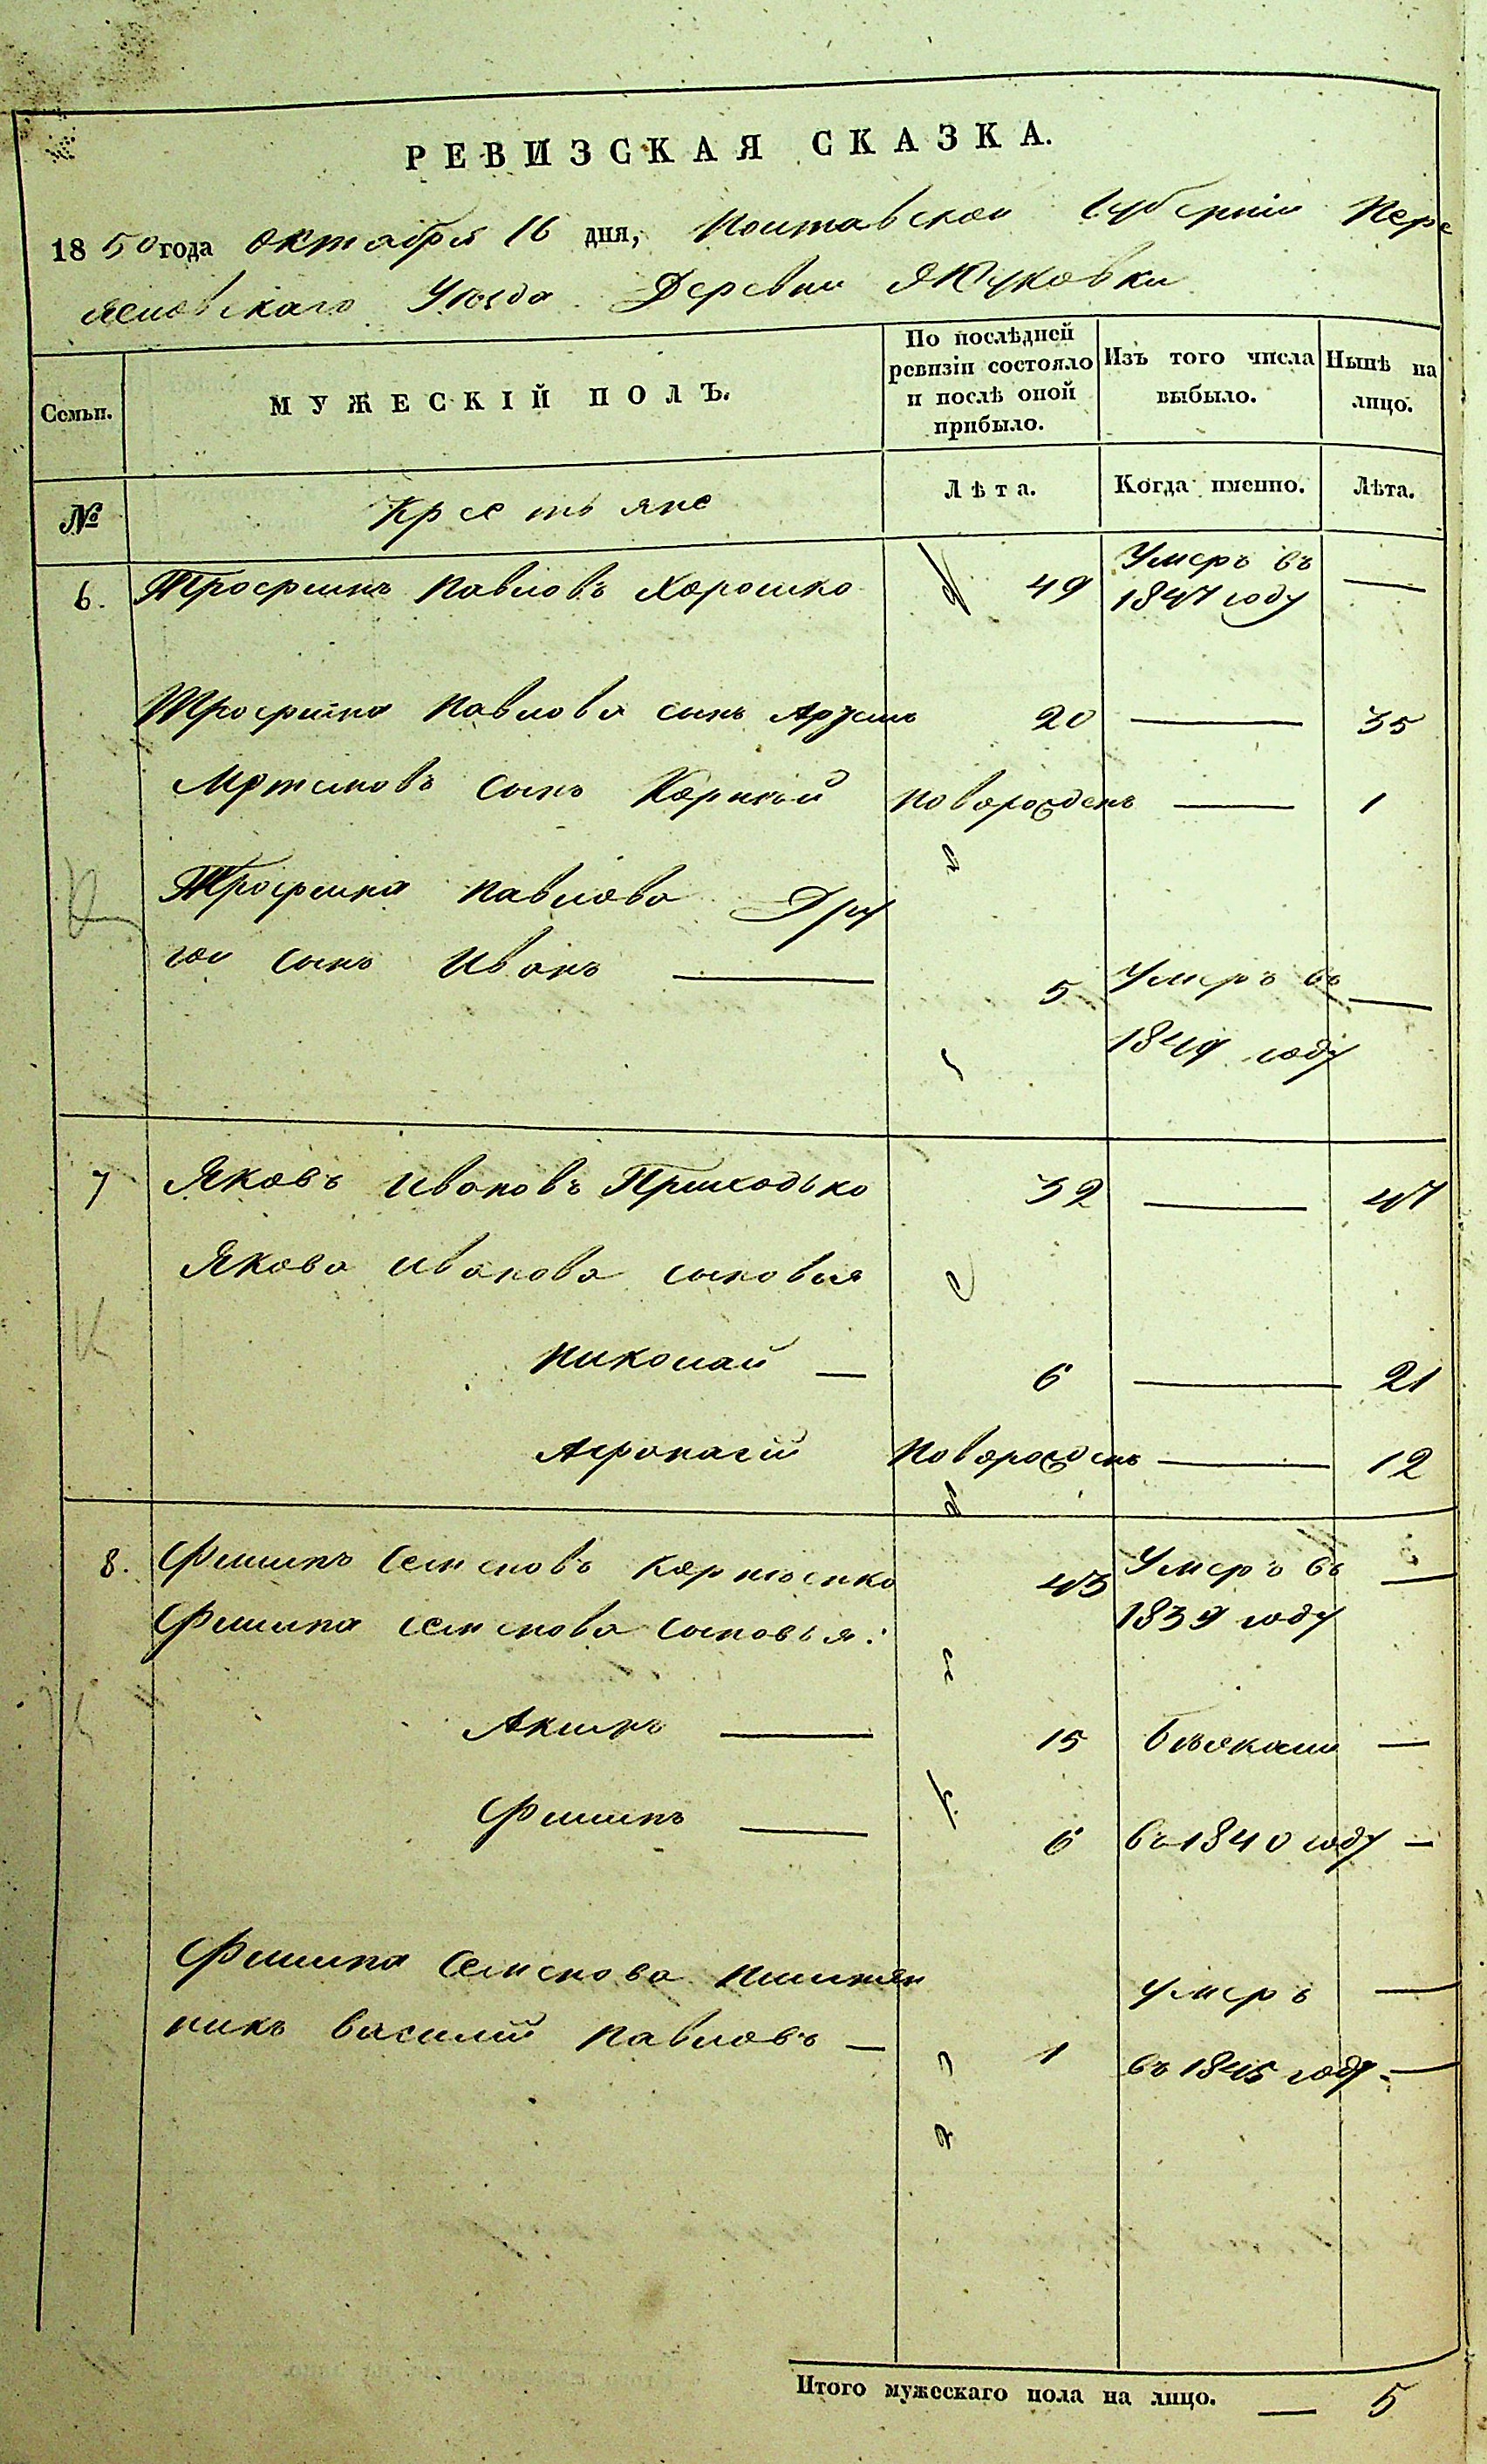 РЕВИЗСКАЯ СКАЗКА.
1850 года Октября 16 дня, Полтавской Губерніи Пере
яславскаго Уѣзда Деревни
Семьи.
МУЖЕСКІЙ ПОЛЪ.
По послѣдней ревизіи состояло и послѣ оной прибыло.
Изъ того числа выбыло.
Нынѣ на лицо.
№
Крестьяне
Лѣта.
Когда именно.
Лѣта.
6. Трофимъ Павловъ Хорошко 49 Умеръ въ 1847 году —
Трофима Павлова сынъ 20 — 35
сынъ Корнѣй новорожденъ — 1
Трофима Павлова Дру
гой сынъ Иванъ — 5 Умеръ въ —
1849 году
7 Яковъ Ивановъ Приходько 32 — 47
Якова Иванова сыновья
Николай — 6 — 21
Афонасій новорожденъ — 12
8. Филипъ Семеновъ Корніенко 43 Умеръ въ —
Филипа Семенова сыновья: 1839 году
Акимъ — 15 бѣжали —
Филипъ — 6 въ 1840 году —
Филипа Семенова племян
никъ Василій Павловъ — 1 умеръ —
въ 1845 году. —
Итого мужескаго пола на лицо. — 5